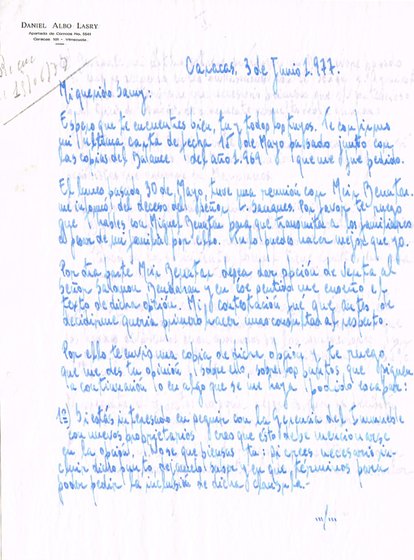 DANIEL ALBO LASRY
Apartado de Correos No. 5541
Caracas 101 - Venezuela
Caracas, 3 de Junio 1.977.
Mi querido Samy:
Espero que te encuentres bien, tu y todos los tuyos. Te confirmo
mi última carta de fecha 18 de Mayo pasado junto con
las copias del Balance del año 1.969 que me has pedido.
El lunes pasado 30 de Mayo, tuve una reunión con Mir Benatar.
me informó del deceso del Señor Sanques. Por favor te ruego
que hables con Miguel Benatar para que transmita a los familiares
el pesar de mi familia por ello. Tu lo puedes hacer mejor que yo.
Por otra parte Mir Benatar desea dar opción de venta al
señor Salomon Bendayan y en ese sentido me enseñó el
texto de dicha opción. Mi contestación fué que antes de
decidirme quería primero hacer unas consultas al respecto.
Por ello te envío una copia de dicha opción y te ruego
que me des tu opinión sobre ello, sobre los puntos que siguen
a continuación o en algo que se me haya podido escapar:
1º) Si estás interesado en seguir con la Gerencia del Inmueble
con nuevos propietarios creo que esto debe mencionarse
en la opción. No se que piensas tu: Si crees necesario in-
cluir dicho punto, déjamelo saber y en que términos para
poder pedir la inclusión de dicha clausula.-